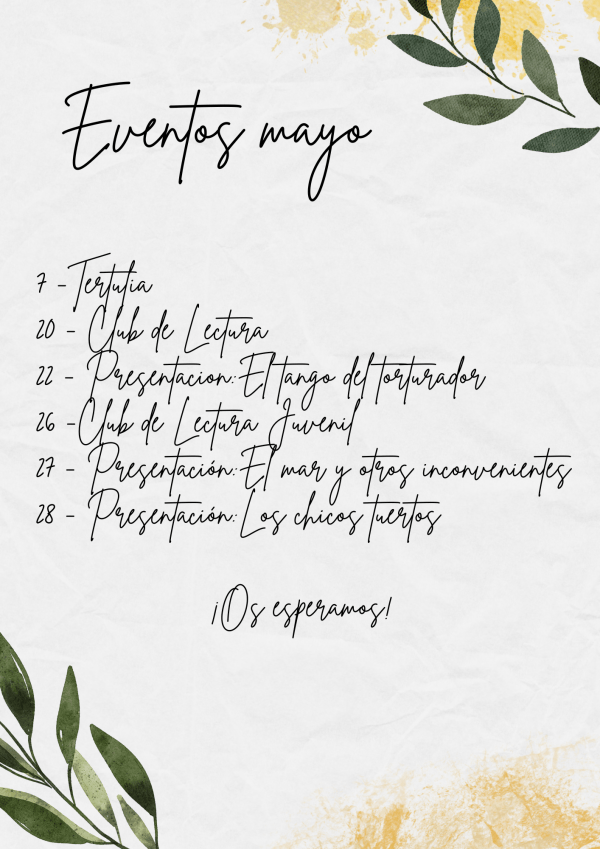 Eventos mayo
7 - Tertulia
20 - Club de Lectura
22 - Presentacion: El tango del torturador
26 - Club de Lectura Juvenil
27 - Presentación: El mar y otros inconvenientes
28 - Presentación: Los chicos tuertos
¡Os esperamos!